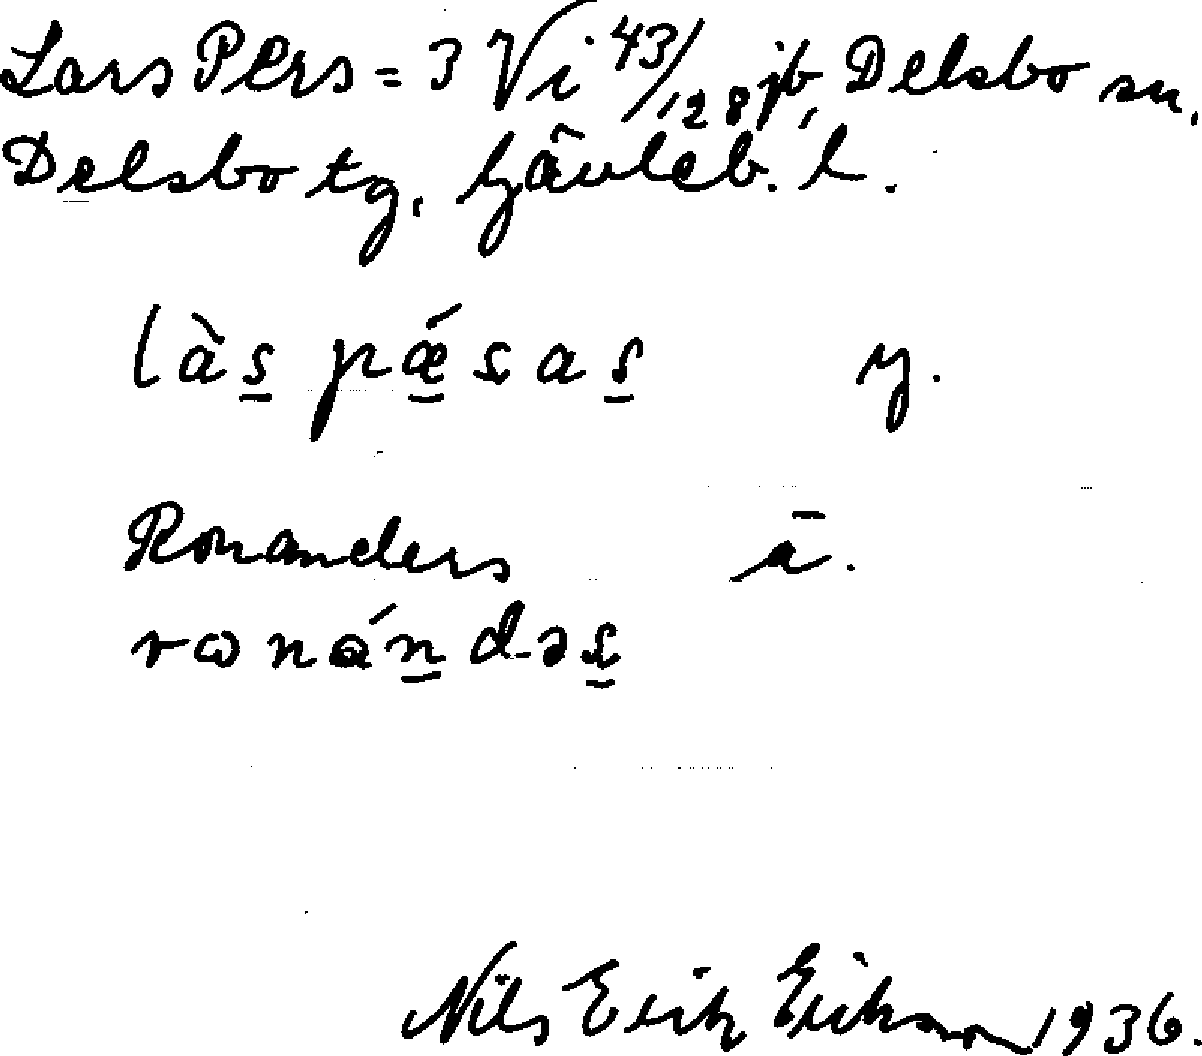 Lars Pers = 3 Vi 43/128 jb, Delsbo sn,
Delsbo tg, Gävleb. l.
làs pǽsas y.
Ronanders ä.
ronándəs
Nils Erik Erikson 1936.